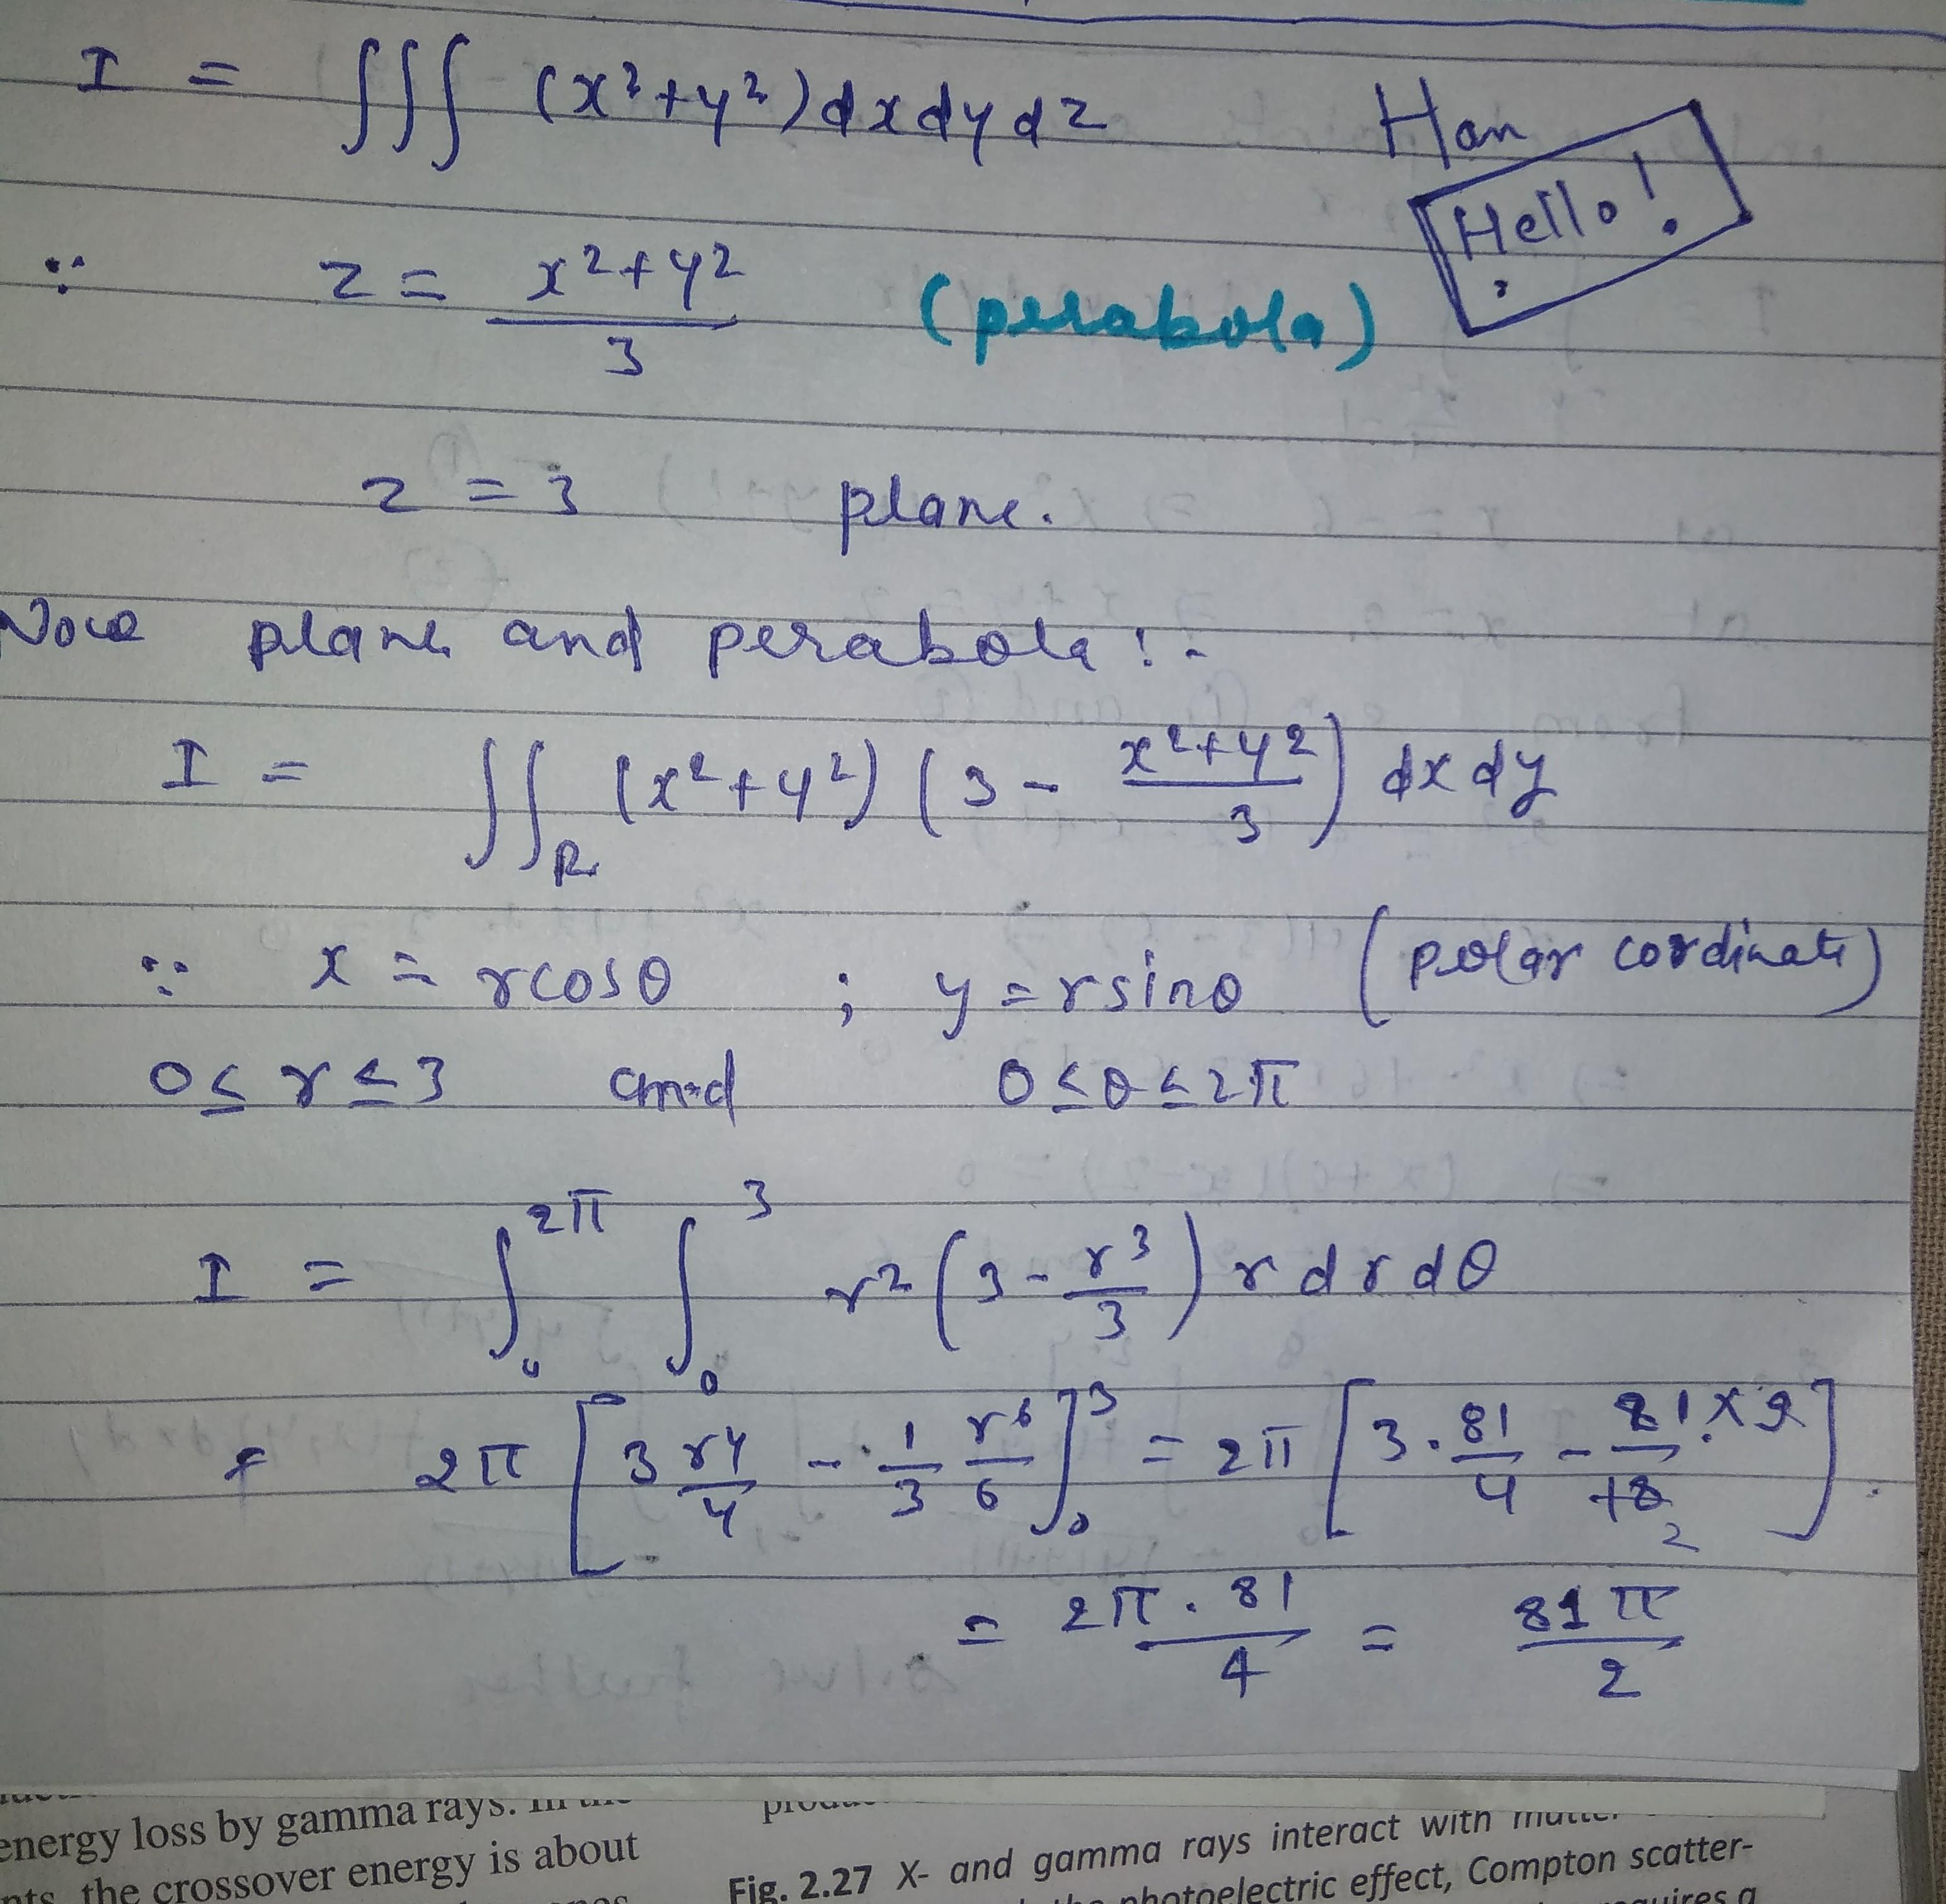 I = ∫∫∫ (x²+y²) dx dy dz Han
Hello!
∵ z = (x²+y²)/3 (perabola)
z = 3 plane.
Now plane and perabola :-
I = ∫∫_R (x²+y²) (3 - (x²+y²)/3) dx dy
∵ x = rcosθ ; y = rsinθ (polar cordinate)
0 ≤ r ≤ 3 and 0 ≤ θ ≤ 2π
I = ∫₀^2π ∫₀^3 r² (3 - r³/3) r dr dθ
= 2π [3 r⁴/4 - 1/3 r⁶/6]₀³ = 2π [3 · 81/4 - 81×9/18 2]
= 2π · 81/4 = 81π/2
energy loss by gamma rays. In the
the crossover energy is about
Fig. 2.27 X- and gamma rays interact with matter
photoelectric effect, Compton scatter-